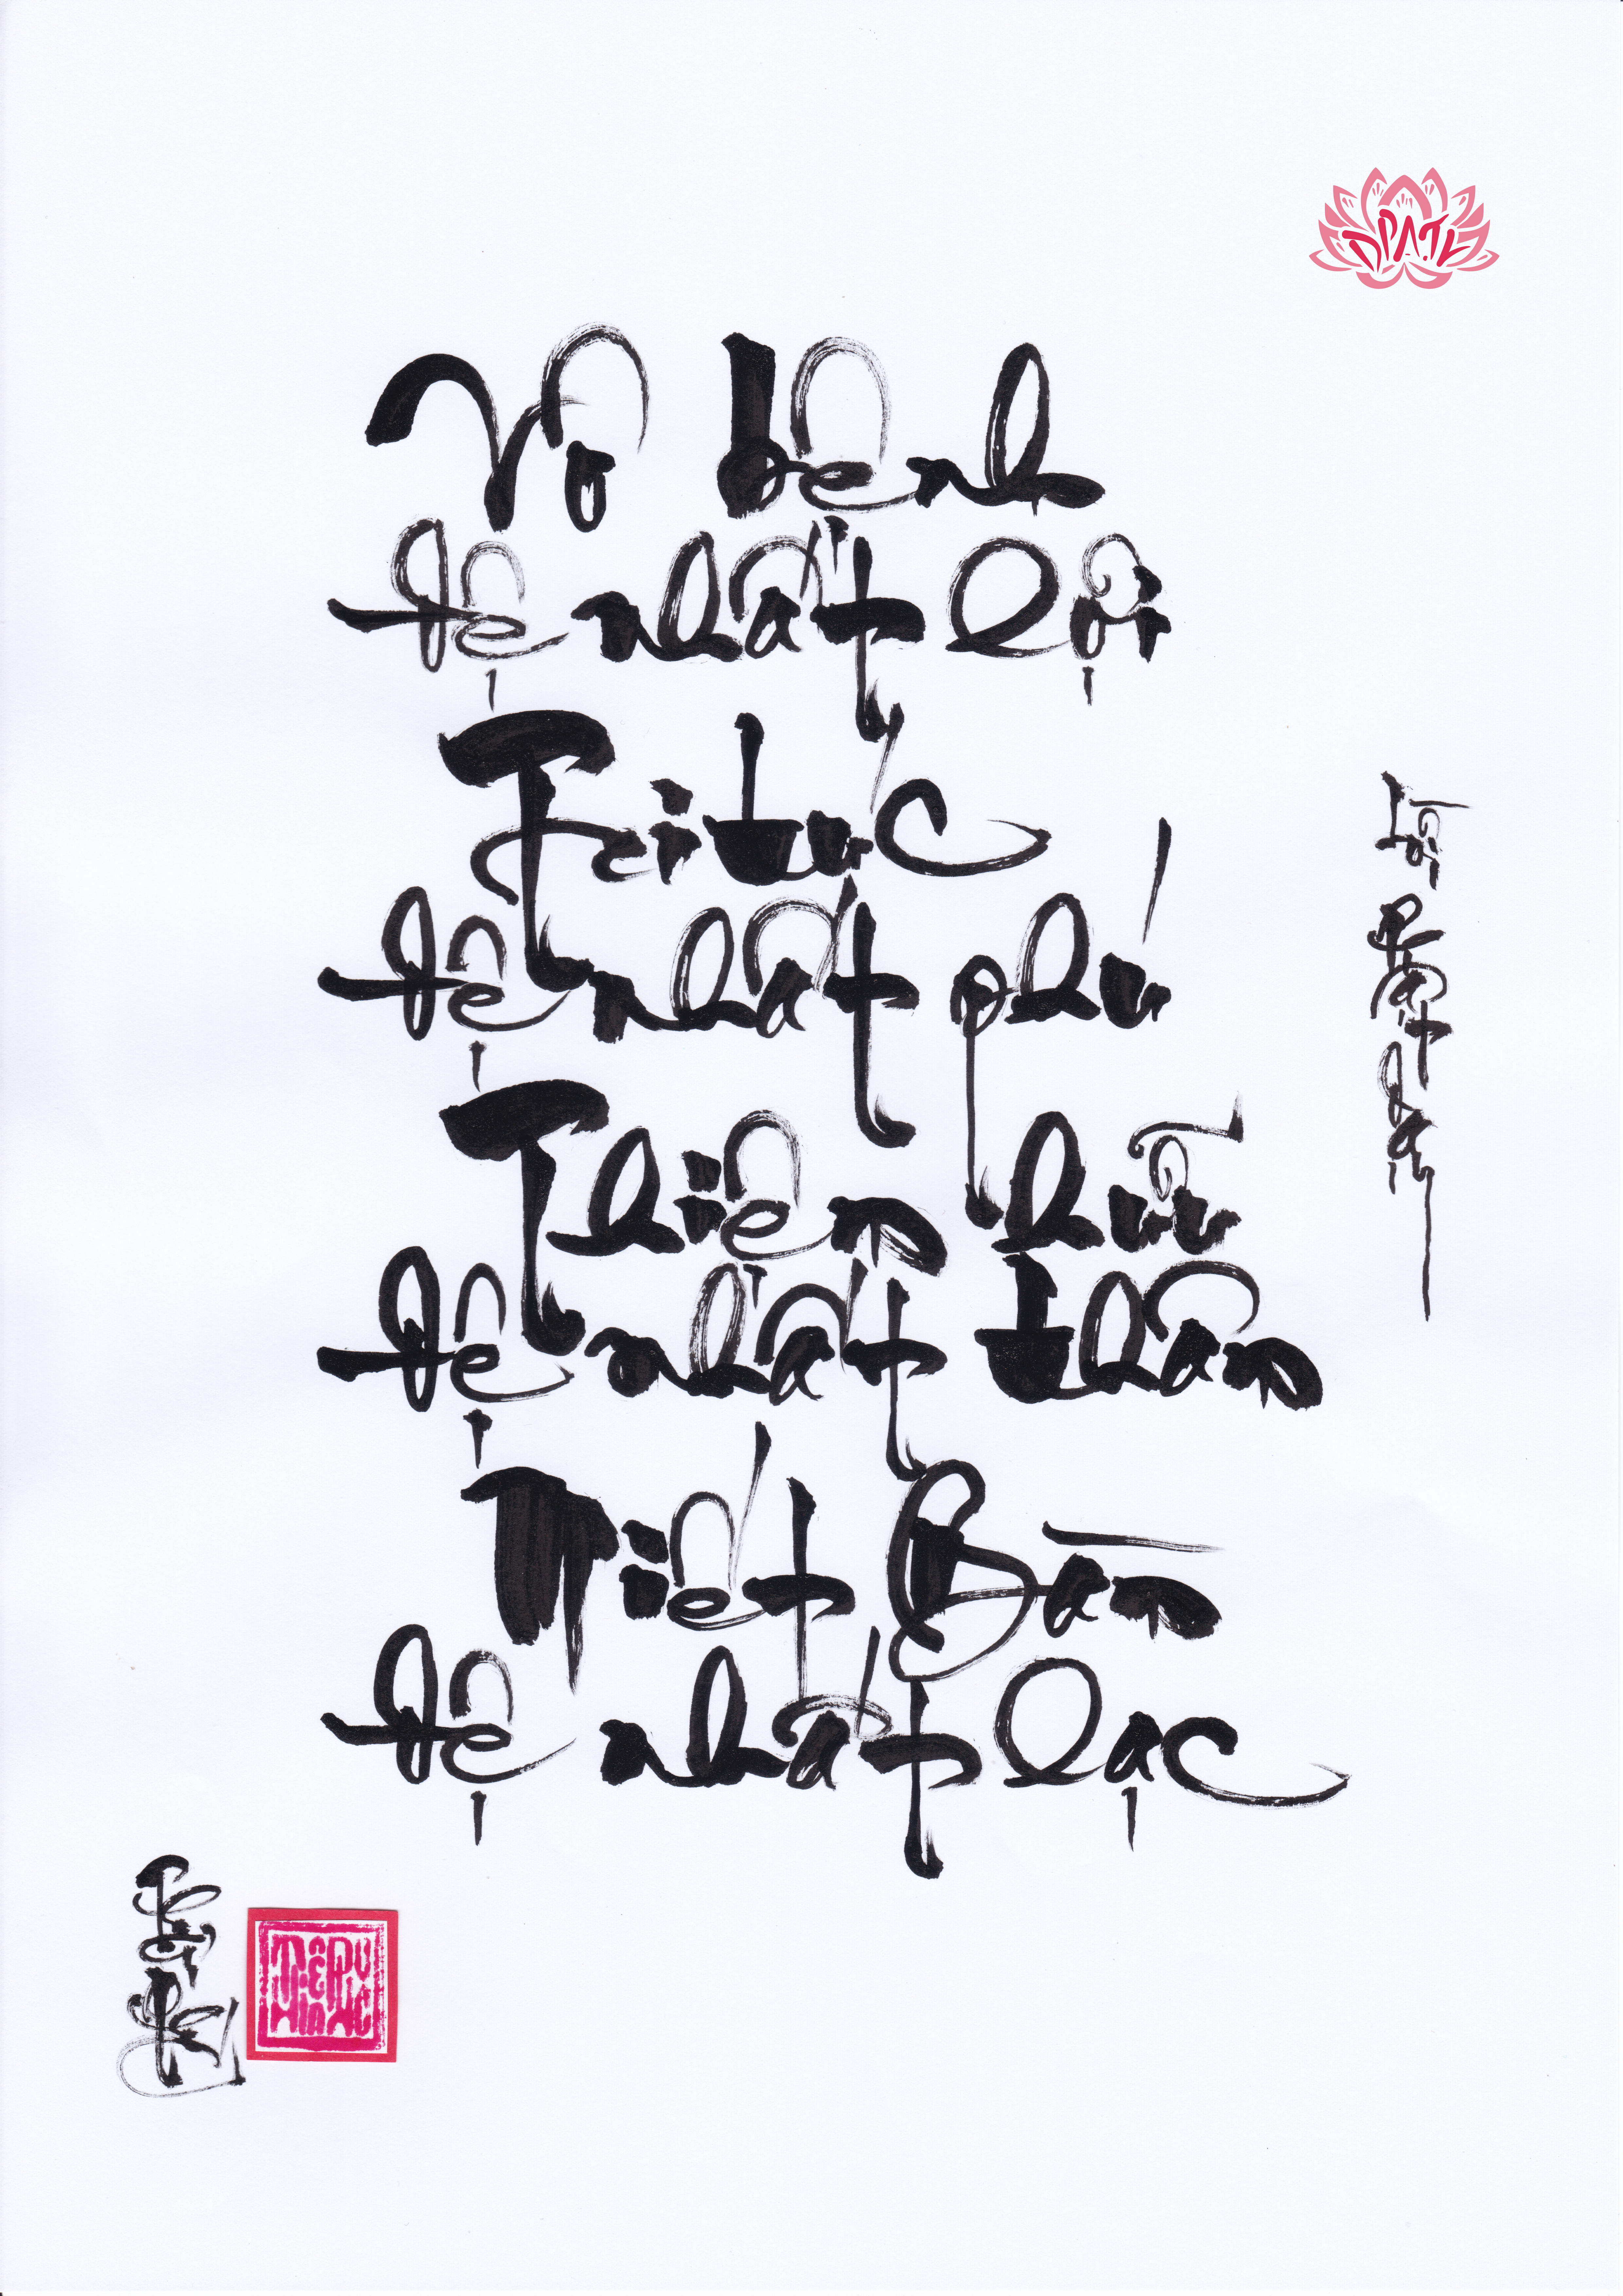 Vô bệnh
đệ nhất lợi
Tri túc
đệ nhất phú
Thiện hữu
đệ nhất thân
Niết Bàn
đệ nhất lạc
Lời Phật dạy